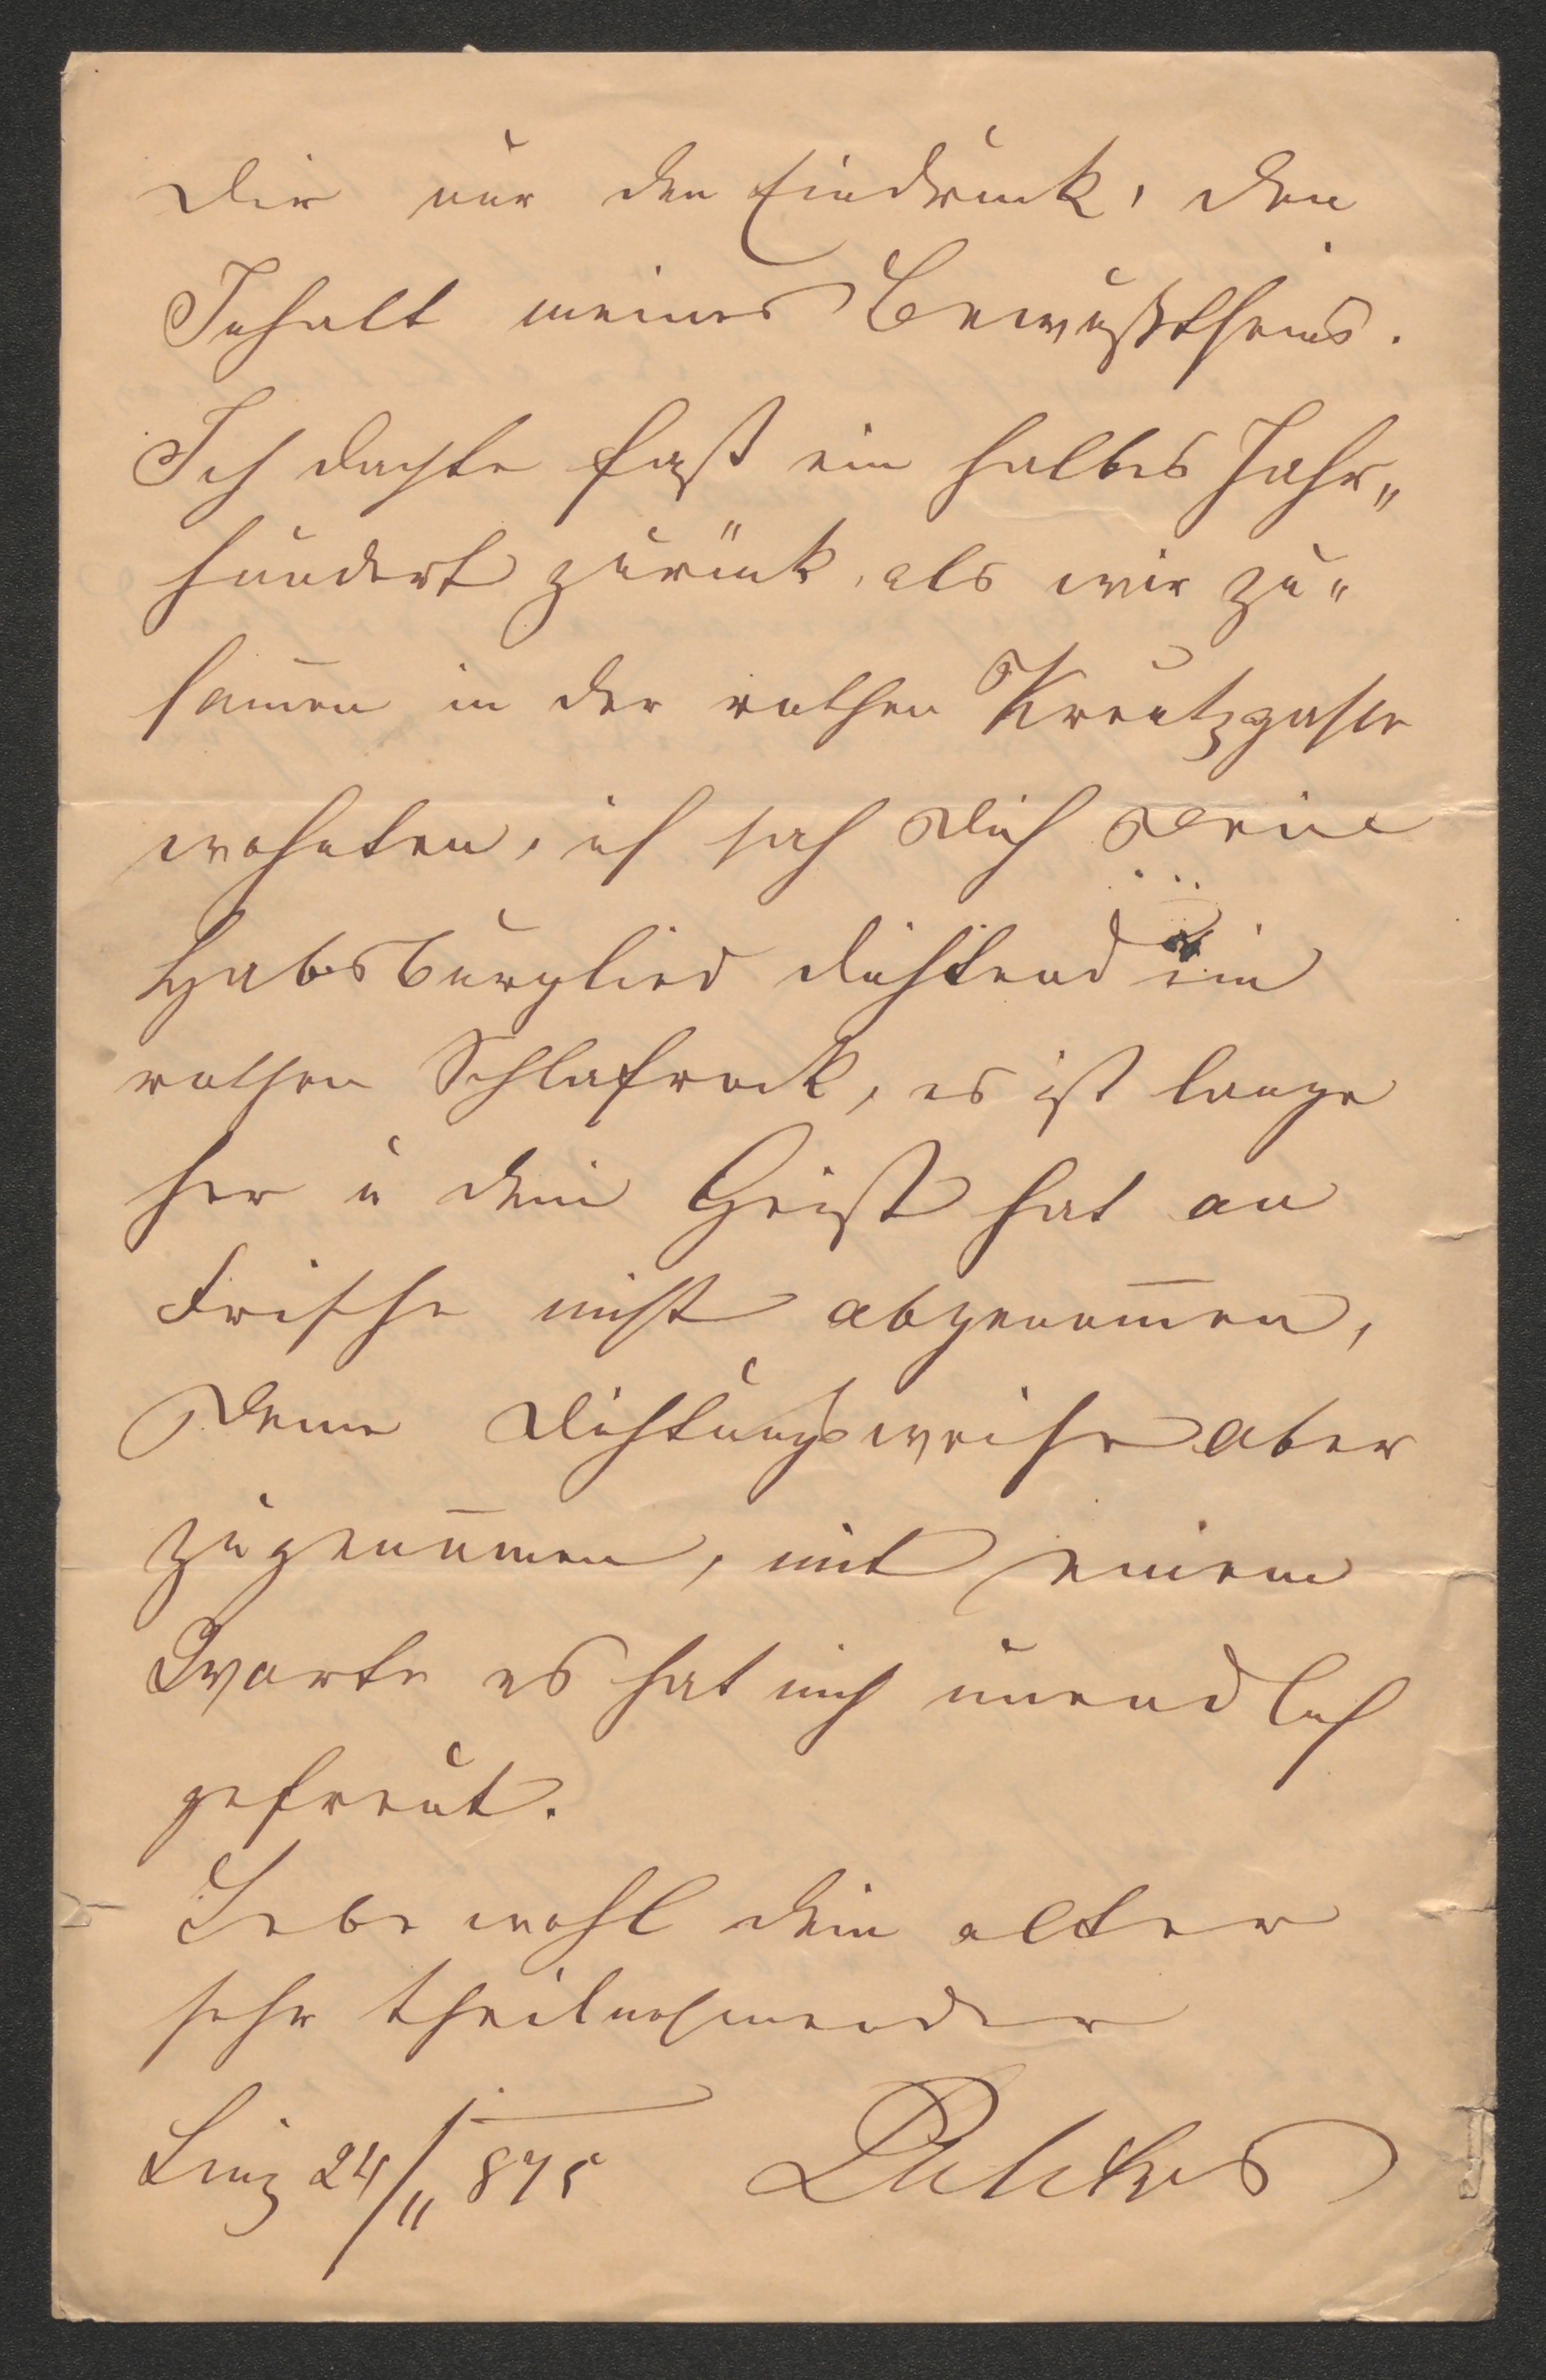 Dir nur den Eindruck, den
Inhalt meines Bewußtseins.
Ich dachte fast ein halbes Jahr„
hundert zurück, als wir zu„
sam̅en in der rothen Kreutzgasse
wohnten, ich sah Dich Dein
Habsburglied dichtend im
rothen Schlafrock, es ist lange
her u dein Geist hat an
Frische nicht abgenom̅en,
Deine Dichtungsweise aber
zugenom̅men, mit einem
Worte es hat mich unendlich
gefreut.
Lebe wohl dein alter
sehr theilnehmender
Linz 24/11 875